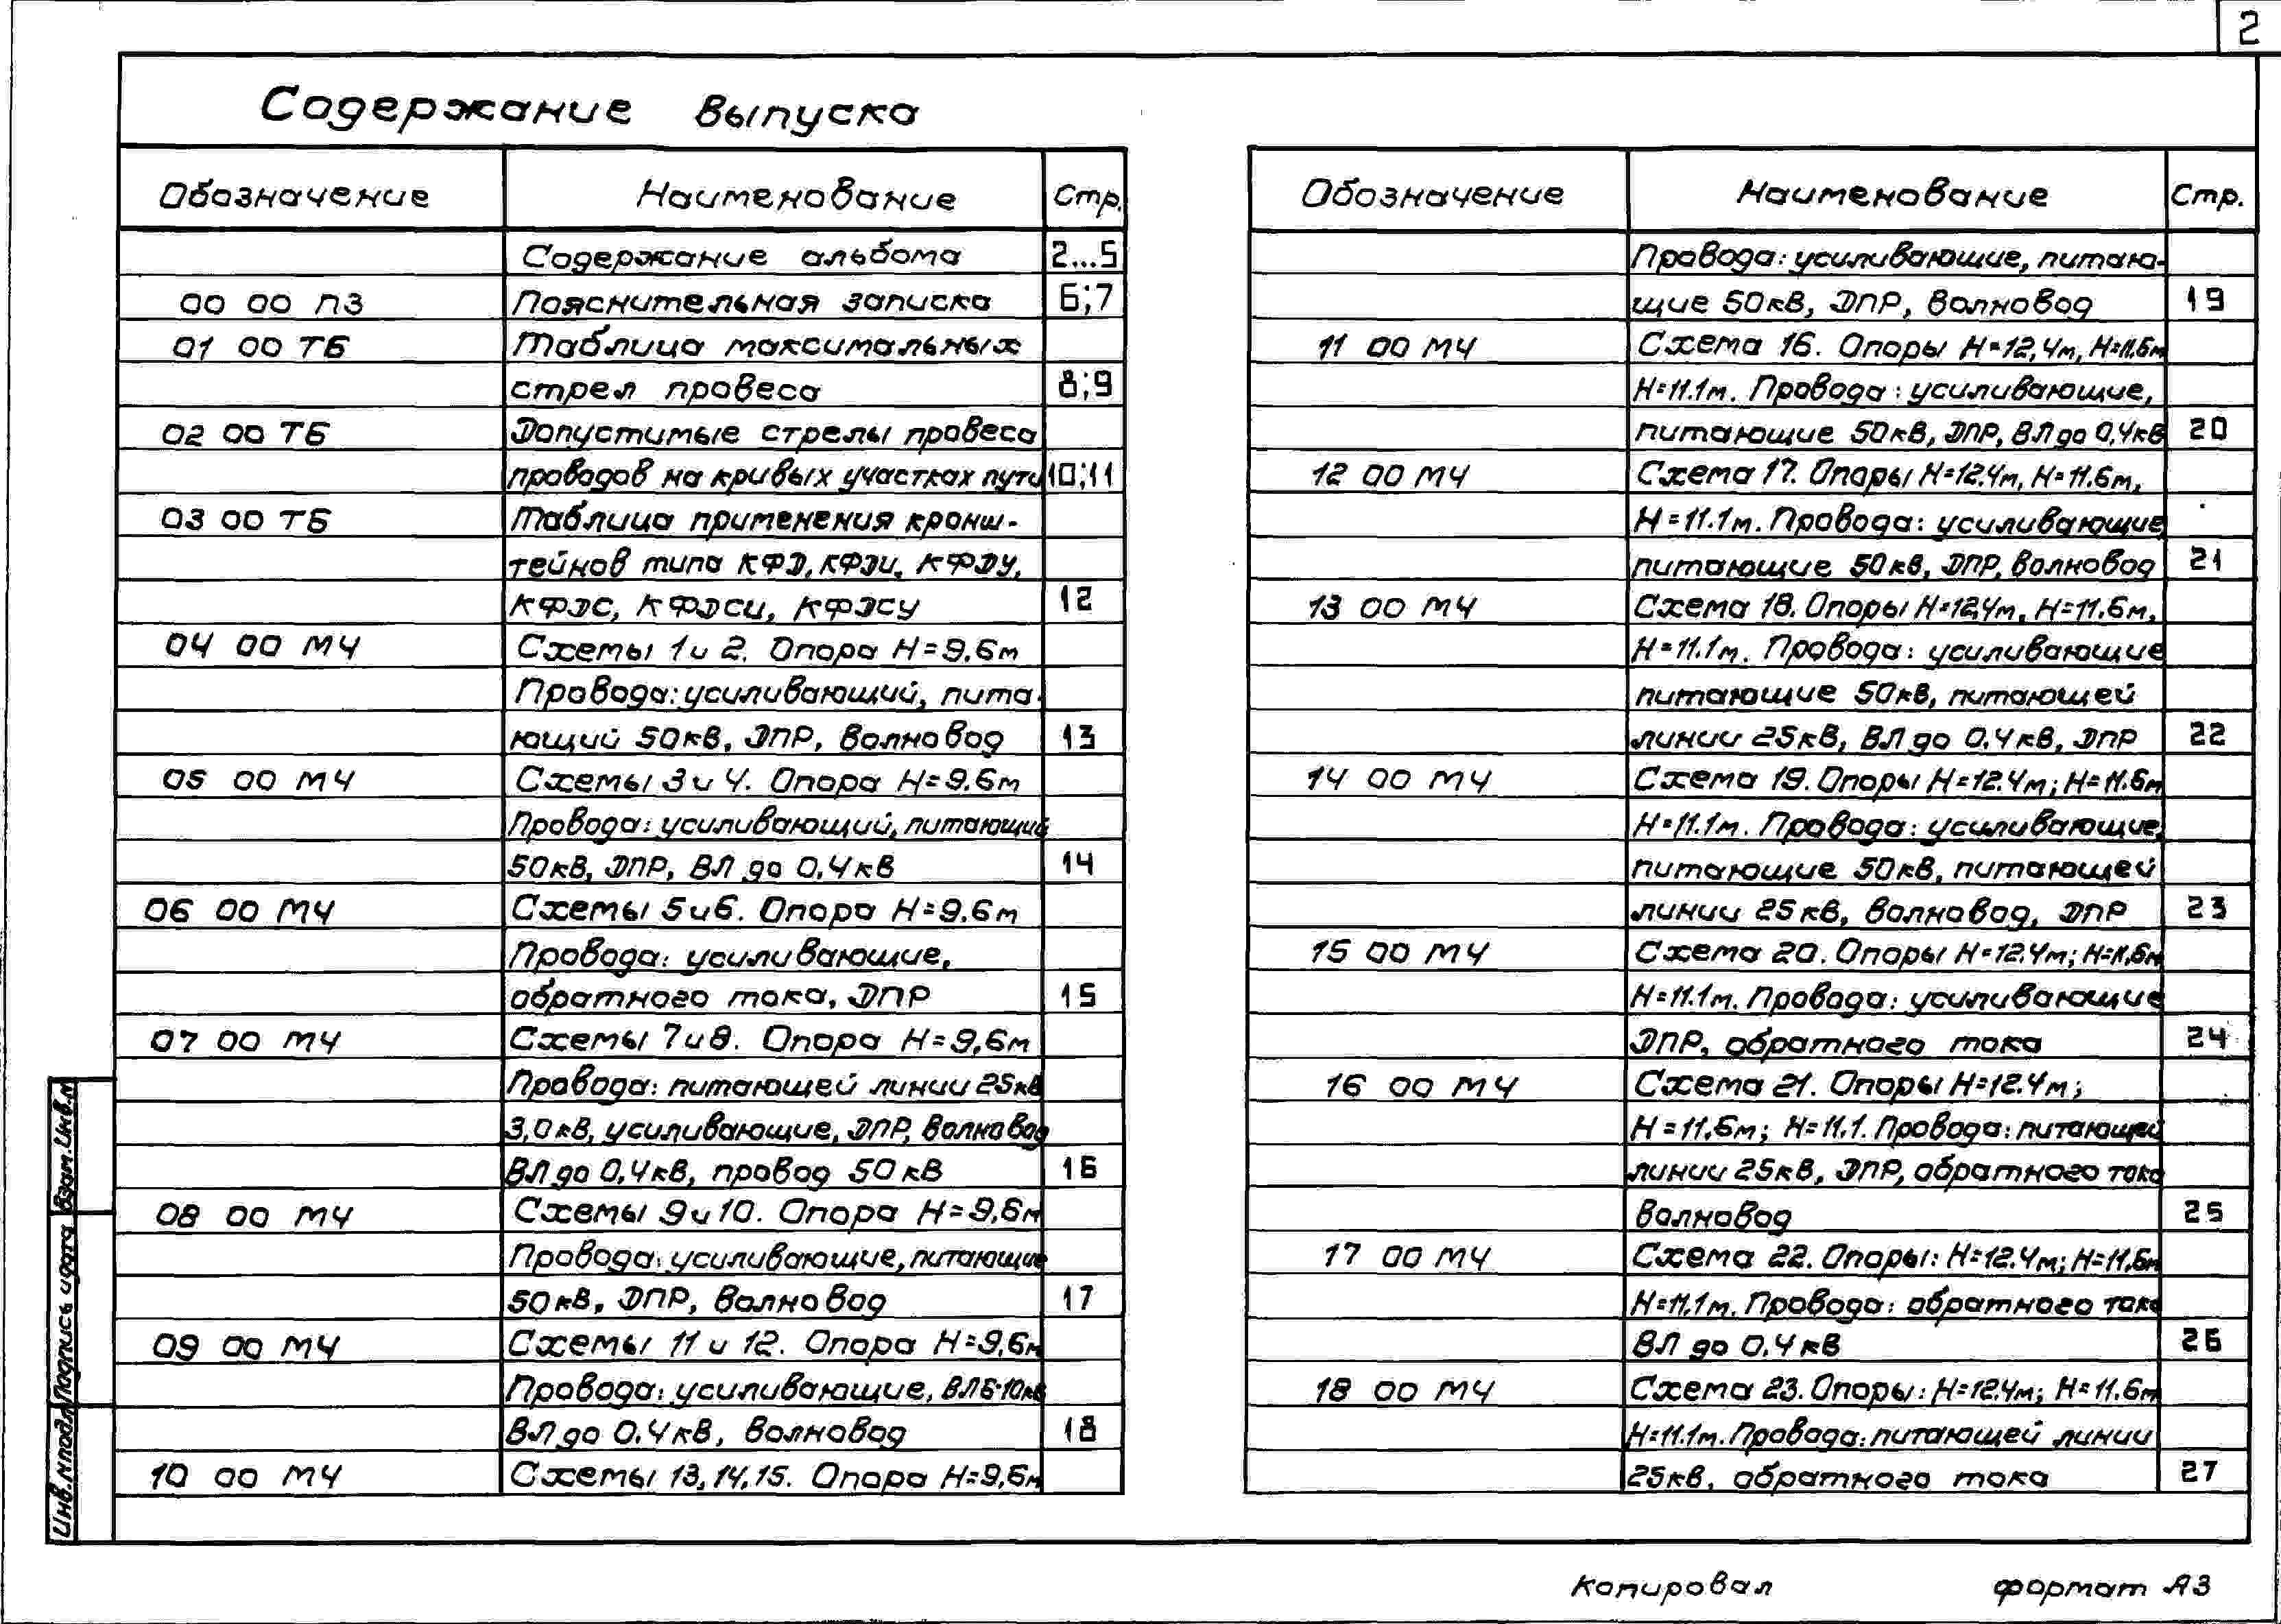 2
Содержание выпуска
Обозначение Наименование Стр.
Содержание альбома 2...5
00 00 ПЗ Пояснительная записка 6;7
01 00 ТБ Таблица максимальных
стрел провеса 8;9
02 00 ТБ Допустимые стрелы провеса
проводов на кривых участках пути 10;11
03 00 ТБ Таблица применения кронш-
тейнов типа КФД, КФДИ, КФДУ,
КФДС, КФДСИ, КФДСУ 12
04 00 МЧ Схемы 1 и 2. Опора Н=9.6м
Провода: усиливающий, пита-
ющий 50кВ, ДПР, волновод 13
05 00 МЧ Схемы 3 и 4. Опора Н=9.6м
Провода: усиливающий, питающий
50кВ, ДПР, ВЛ до 0,4кВ 14
06 00 МЧ Схемы 5 и 6. Опора Н=9.6м
Провода: усиливающие,
обратного тока, ДПР 15
07 00 МЧ Схемы 7 и 8. Опора Н=9,6м
Провода: питающей линии 25кВ
3,0кВ, усиливающие, ДПР, волновод
ВЛ до 0,4кВ, провод 50кВ 16
08 00 МЧ Схемы 9 и 10. Опора Н=9,6м
Провода: усиливающие, питающие
50кВ, ДПР, волновод 17
09 00 МЧ Схемы 11 и 12. Опора Н=9,6м
Провода: усиливающие, ВЛ 6-10кВ
ВЛ до 0.4кВ, волновод 18
10 00 МЧ Схемы 13, 14, 15. Опора Н=9,6м
Обозначение Наименование Стр.
Провода: усиливающие, питаю-
щие 50кВ, ДПР, волновод 19
11 00 МЧ Схема 16. Опоры Н=12,4м, Н=11,6м
Н=11.1м. Провода: усиливающие,
питающие 50кВ, ДПР, ВЛ до 0,4кВ 20
12 00 МЧ Схема 17. Опоры Н=12.4м, Н=11.6м,
Н=11.1м. Провода: усиливающие
питающие 50кВ, ДПР, волновод 21
13 00 МЧ Схема 18. Опоры Н=12,4м, Н=11.6м,
Н=11.1м. Провода: усиливающие
питающие 50кВ, питающей
линии 25кВ, ВЛ до 0.4кВ, ДПР 22
14 00 МЧ Схема 19. Опоры Н=12.4м; Н=11.6м
Н=11.1м. Провода: усиливающие,
питающие 50кВ, питающей
линии 25кВ, волновод, ДПР 23
15 00 МЧ Схема 20. Опоры Н=12.4м; Н=11,6м
Н=11.1м. Провода: усиливающие
ДПР, обратного тока 24
16 00 МЧ Схема 21. Опоры Н=12.4м;
Н=11,6м; Н=11,1. Провода: питающей
линии 25кВ, ДПР, обратного тока
волновод 25
17 00 МЧ Схема 22. Опоры: Н=12.4м; Н=11,6м
Н=11,1м. Провода: обратного тока
ВЛ до 0,4кВ 26
18 00 МЧ Схема 23. Опоры: Н=12.4м; Н=11.6м
Н=11.1м. Провода: питающей линии
25кВ, обратного тока 27
Взам. Инв. N
Подпись и дата
Инв. N подл.
Копировал формат А3